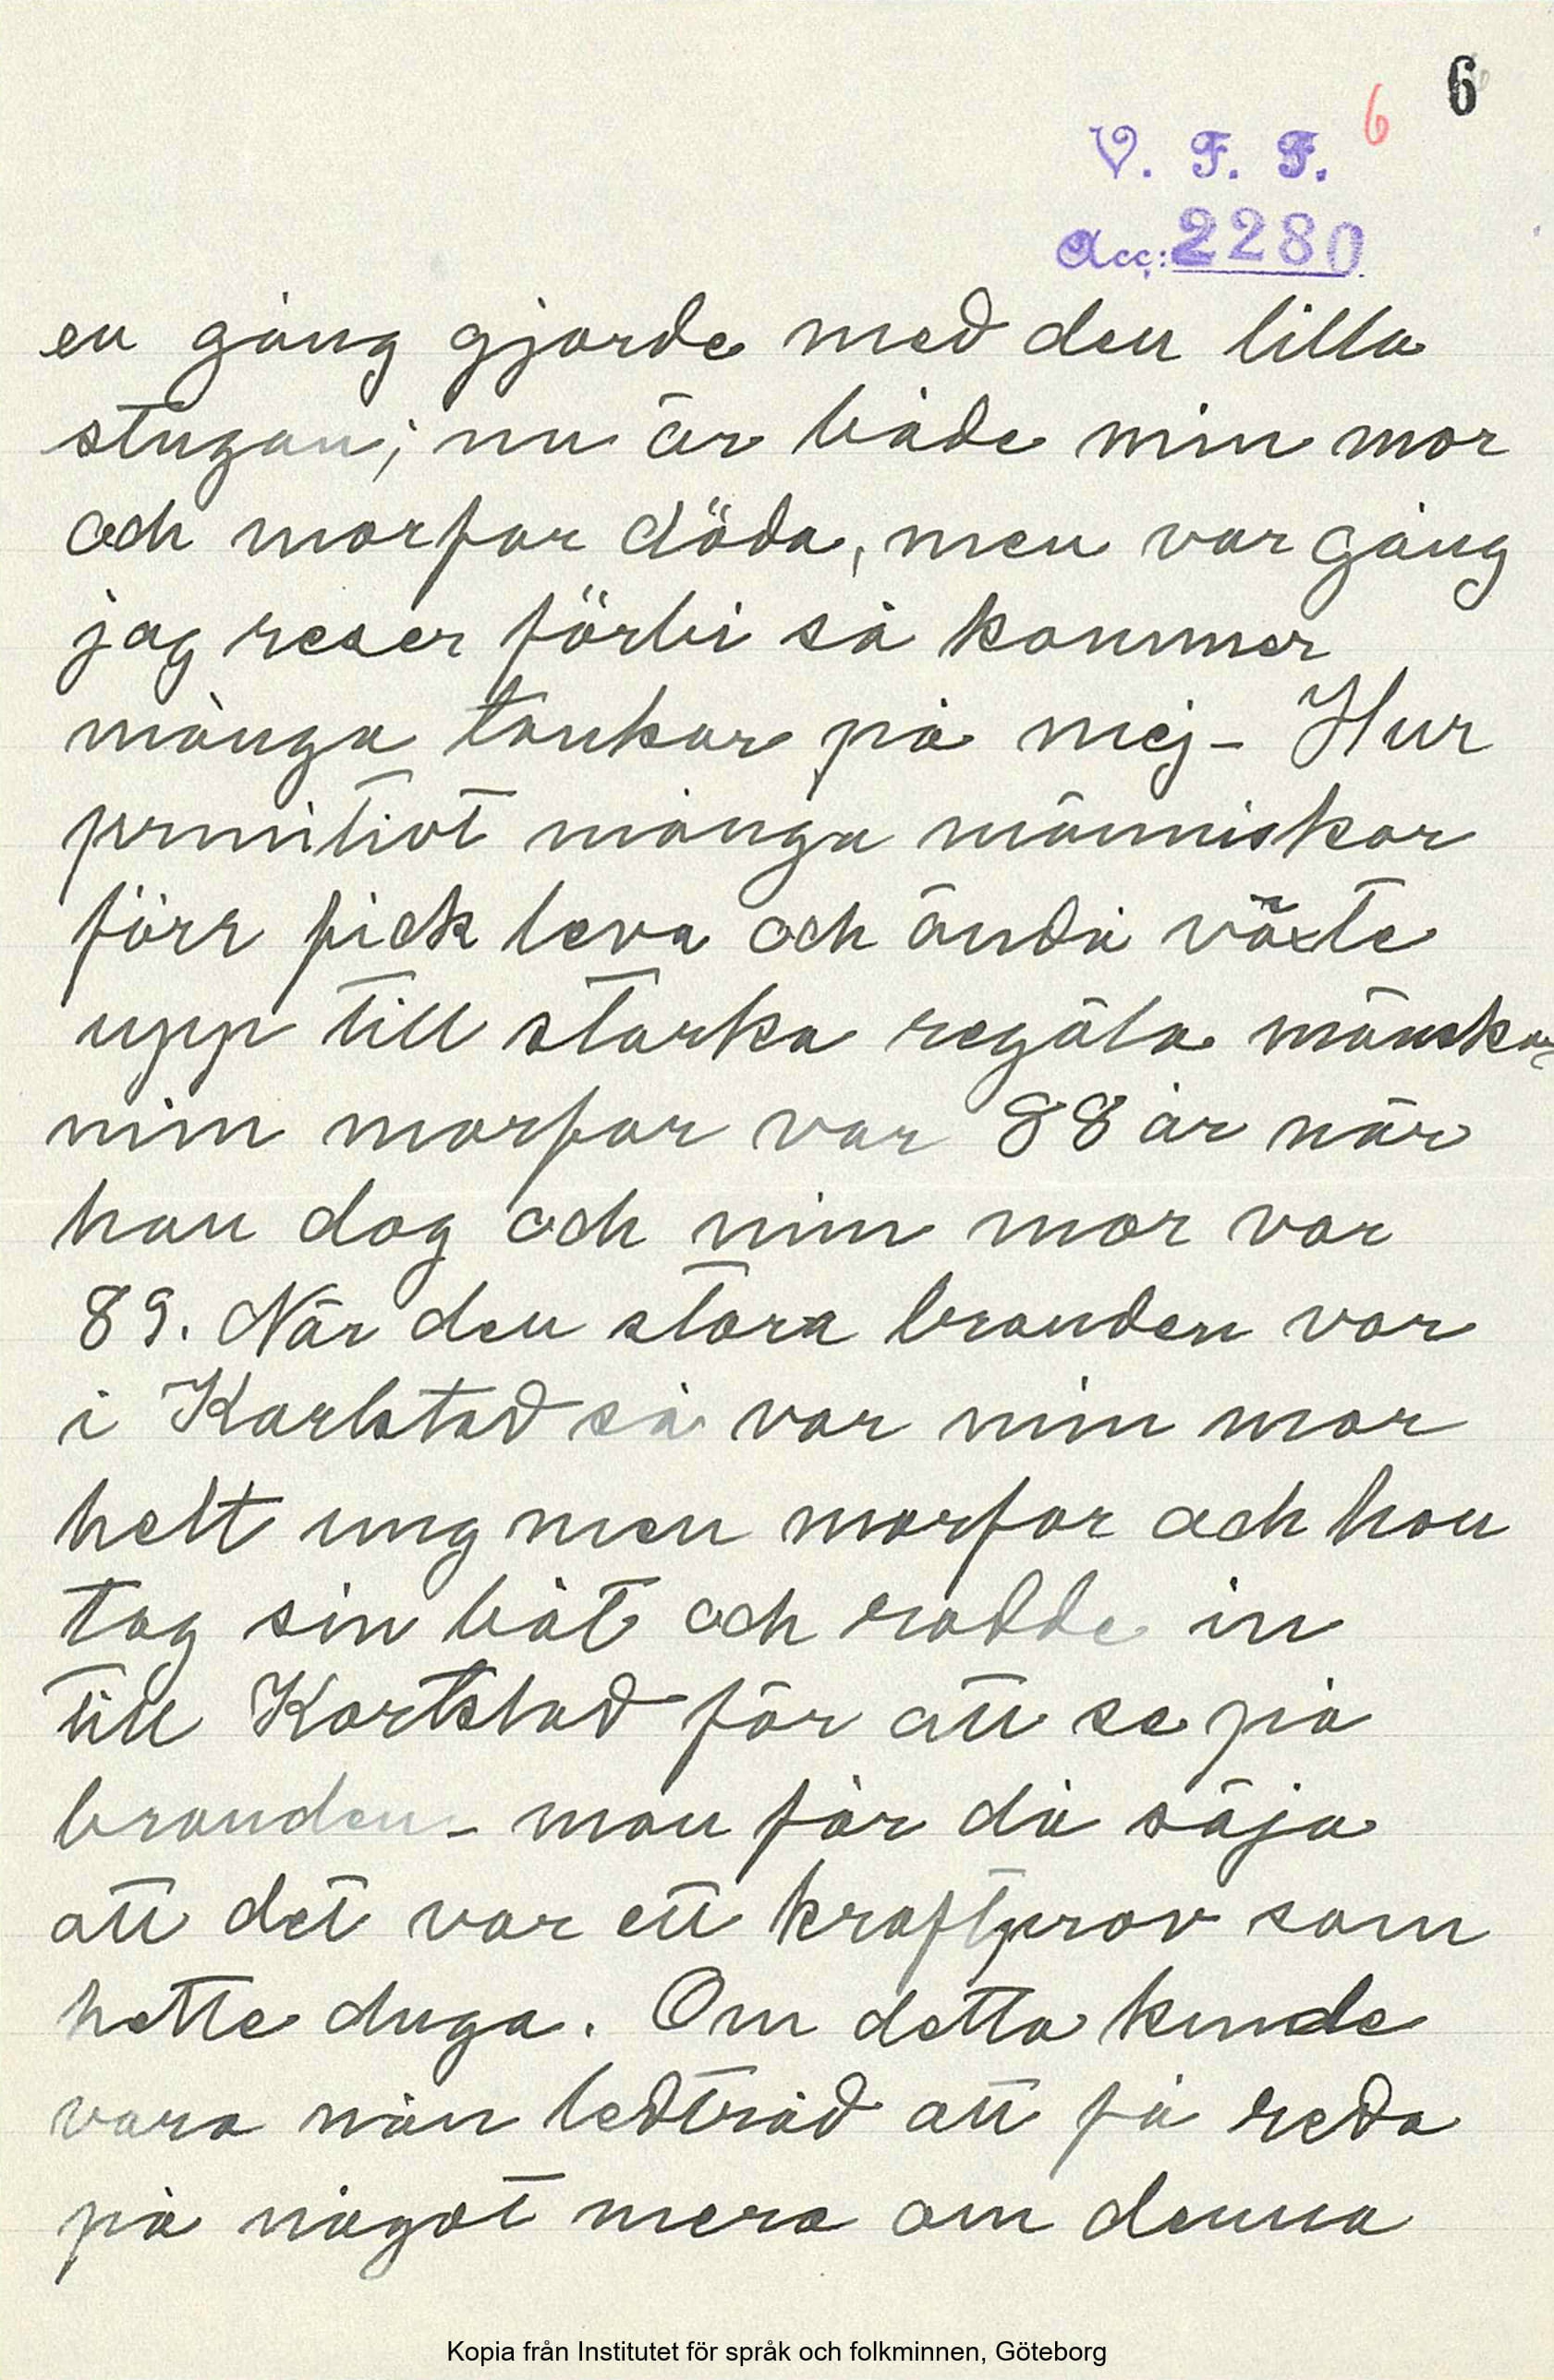 6
6
V. F. F.
Acc: 2280
en gång gjorde med den lilla
stugan; nu är både min mor
och morfar döda, men var gång
jag reser förbi så kommer
många tankar på mej - Hur
primitivt många människor
förr fick leva och ändå växte
upp till starka regäla mänskor
min morfar var 88 år när
han dog och min mor var
89. När den stora branden var
i Karlstad så var min mor
helt ung men morfar och hon
tog sin båt och rodde in
till Karlstad för att se på
branden - man får då säja
att det var ett kraftprov som
hette duga. Om detta kunde
vara nån ledtråd att få reda
på något mera om denna
Kopia från Institutet för språk och folkminnen, Göteborg